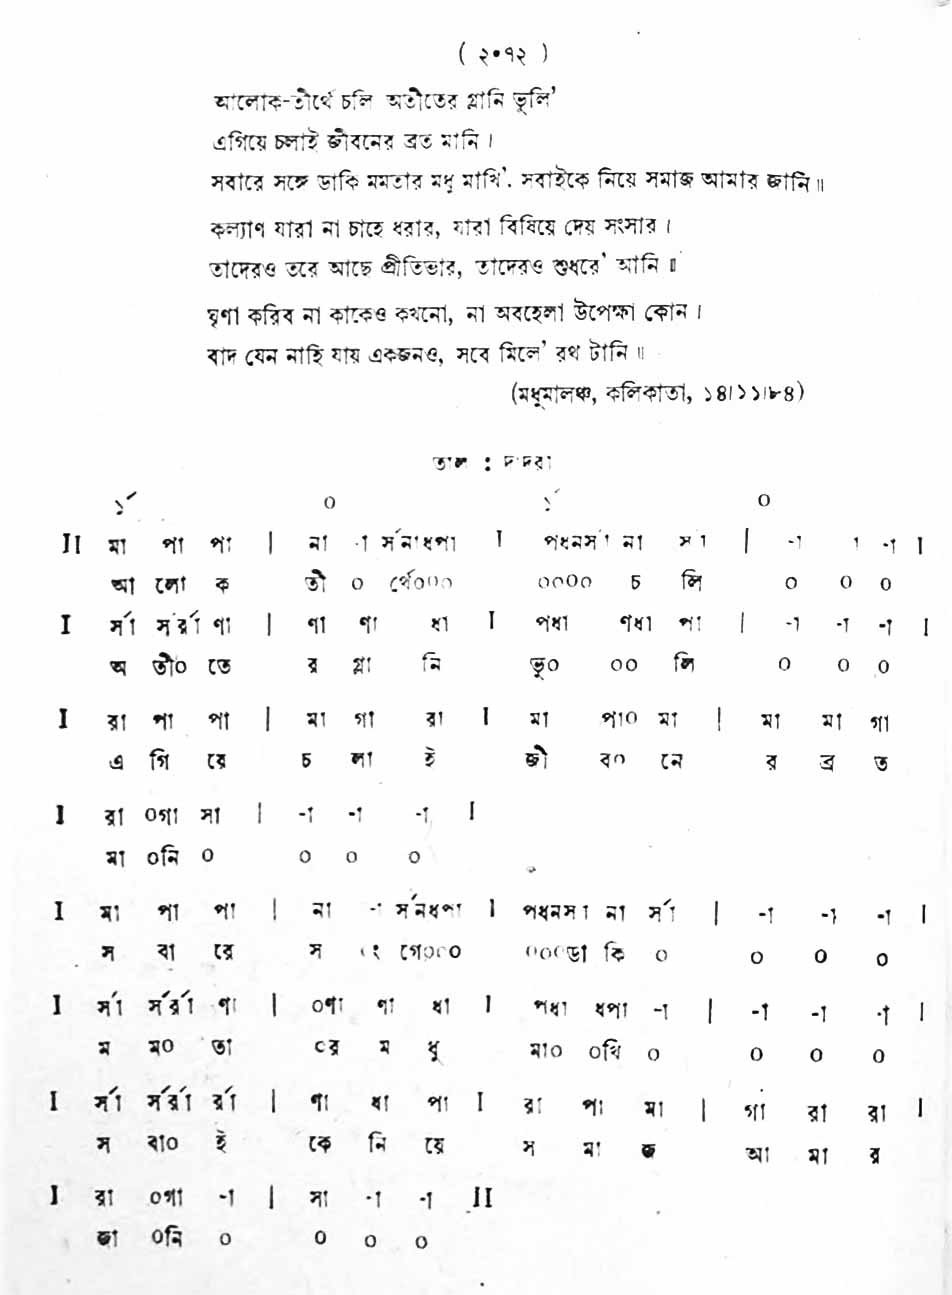 ( ২০৭২ )
আলোক-তীর্থে চলি অতীতের গ্লানি ভুলি'
এগিয়ে চলাই জীবনের ব্রত মানি ।
সবারে সঙ্গে ডাকি মমতার মধু মাখি'. সবাইকে নিয়ে সমাজ আমার জানি ॥
কল্যাণ যারা না চাহে ধরার, যারা বিষিয়ে দেয় সংসার ।
তাদেরও তরে আছে প্রীতিভার, তাদেরও শুধরে' আনি ॥
ঘৃণা করিব না কাকেও কখনো, না অবহেলা উপেক্ষা কোন ।
বাদ যেন নাহি যায় একজনও, সবে মিলে' রথ টানি ॥
(মধুমালঞ্চ, কলিকাতা, ১৪।১১।৮৪)
তাল : দাদরা
১´ ০ ১´ ০
II মা পা পা | না -া র্সনাধপা I পধনর্সা না র্সা | -া -া -া I
আ লো ক তী ০ র্থে০০০ ০০০০ চ লি ০ ০ ০
I র্সা র্সর্রা ণা | ণা ণা ধা I পধা ণধা পা | -া -া -া I
অ তী০ তে র গ্লা নি ভু০ ০০ লি ০ ০ ০
I রা পা পা | মা গা রা I মা পা০ মা | মা মা গা
এ গি য়ে চ লা ই জী ব০ নে র ব্র ত
I রা ০গা সা | -া -া -া I
মা ০নি ০ ০ ০ ০
I মা পা পা | না -া র্সনধপা I পধনর্সা না র্সা | -া -া -া I
স বা রে স ং গে০০০ ০০০ডা কি ০ ০ ০ ০
I র্সা র্সর্রা ণা | ০ণা ণা ধা I পধা ধপা -া | -া -া -া I
ম ম০ তা ০র ম ধু মা০ ০খি ০ ০ ০ ০
I র্সা র্সর্রা র্রা | ণা ধা পা I রা পা মা | গা রা রা I
স বা০ ই কে নি য়ে স মা জ আ মা র
I রা ০গা -া | সা -া -া II
জা ০নি ০ ০ ০ ০